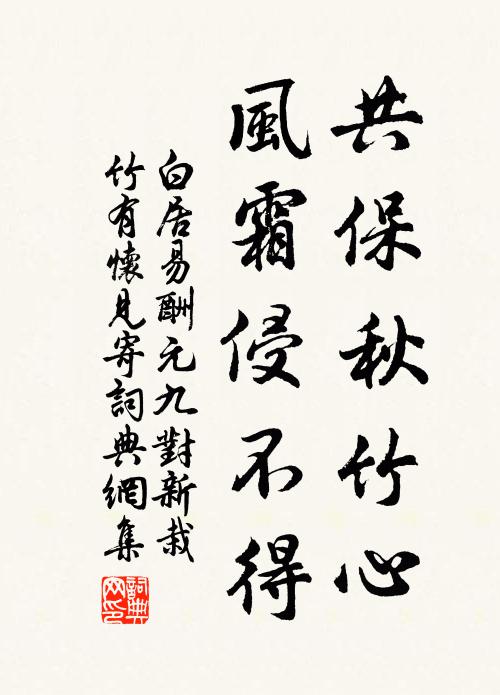 共保秋竹心
風霜侵不得
白居易酬元九對新栽
竹有懷見寄詞典網集
詞典
网印